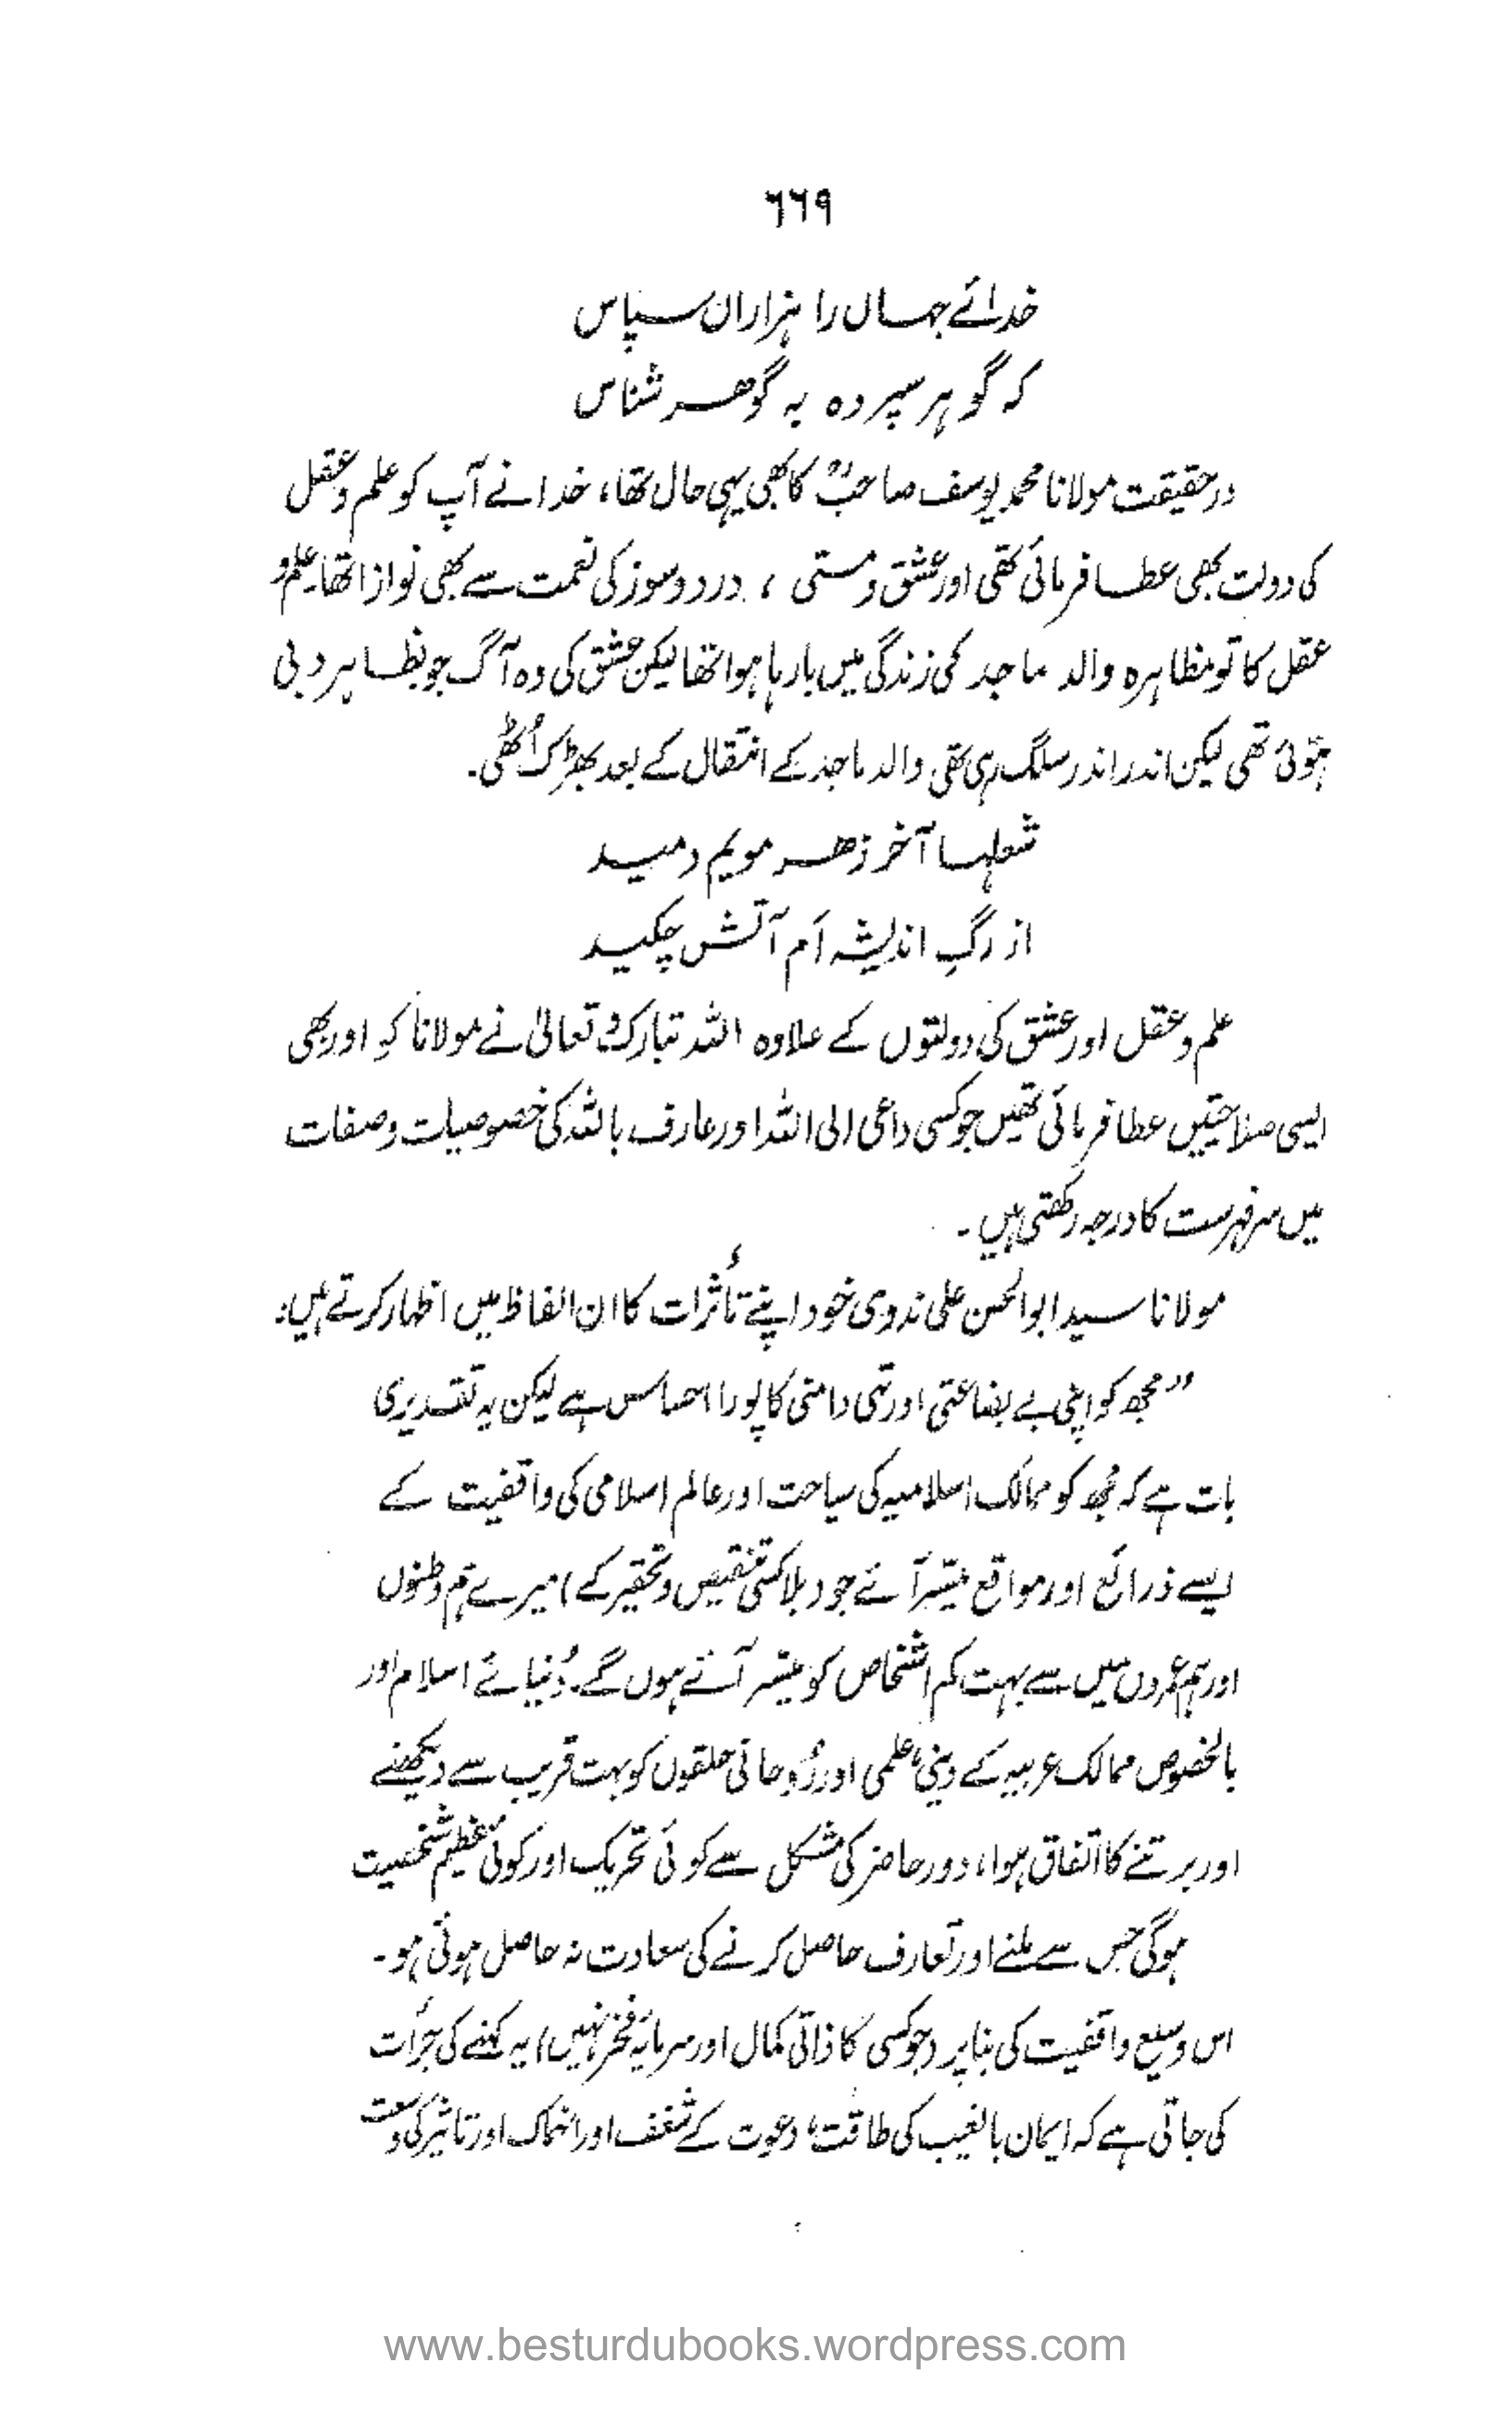 ٦٦٩
خدائے جہاں را ہزاراں سپاس
کہ گوہر سپردہ بہ گوھر شناس
درحقیقت مولانا محمد یوسف صاحبؒ کا بھی یہی حال تھا، خدا نے آپ کو علم و عقل
کی دولت بھی عطا فرمائی تھی اور عشق و مستی ، درد و سوز کی نعمت سے بھی نوازا تھا۔ علم و
عقل کا تو مظاہرہ والد ماجد کی زندگی میں بارہا ہوا تھا لیکن عشق کی وہ آگ جو بظاہر دبی
ہوئی تھی لیکن اندر اندر سلگ رہی تھی والد ماجد کے انتقال کے بعد بھڑک اُٹھی۔
شعلہا آخر ز ھر مویم دمید
از رگِ اندیشہ اَم آتش چکید
علم و عقل اور عشق کی دولتوں کے علاوہ اللہ تبارک و تعالیٰ نے مولانا کو اور بھی
ایسی صلاحیتیں عطا فرمائی تھیں جو کسی داعی الی اللہ اور عارف باللہ کی خصوصیات و صفات
میں سرفہرست کا درجہ رکھتی ہیں ۔
مولانا سید ابوالحسن علی ندوی خود اپنے تأثرات کا ان الفاظ میں اظہار کرتے ہیں:
”مجھ کو اپنی بے بضاعتی اور تہی دامنی کا پورا احساس ہے لیکن یہ تقدیری
بات ہے کہ مجھ کو ممالک اسلامیہ کی سیاحت اور عالم اسلامی کی واقفیت کے
ایسے ذرائع اور مواقع میسّر آئے جو (بلا کسی تنقیص و تحقیر کے) میرے ہم وطنوں
اور ہم عمروں میں سے بہت کم اشخاص کو میسّر آئے ہوں گے۔ دُنیائے اسلام اور
بالخصوص ممالک عربیہ کے دینی، علمی اور رُوحانی حلقوں کو بہت قریب سے دیکھنے
اور برتنے کا اتفاق ہوا، دور حاضر کی مشکل سے کوئی تحریک اور کوئی عظیم شخصیت
ہوگی جس سے ملنے اور تعارف حاصل کرنے کی سعادت نہ حاصل ہوئی ہو۔
اس وسیع واقفیت کی بنا پر (جو کسی کا ذاتی کمال اور سرمایۂ فخر نہیں) یہ کہنے کی جرأت
کی جاتی ہے کہ ایمان بالغیب کی طاقت، دعوت کے شغف اور انہماک اور تاثیر کی وسعت
www.besturdubooks.wordpress.com